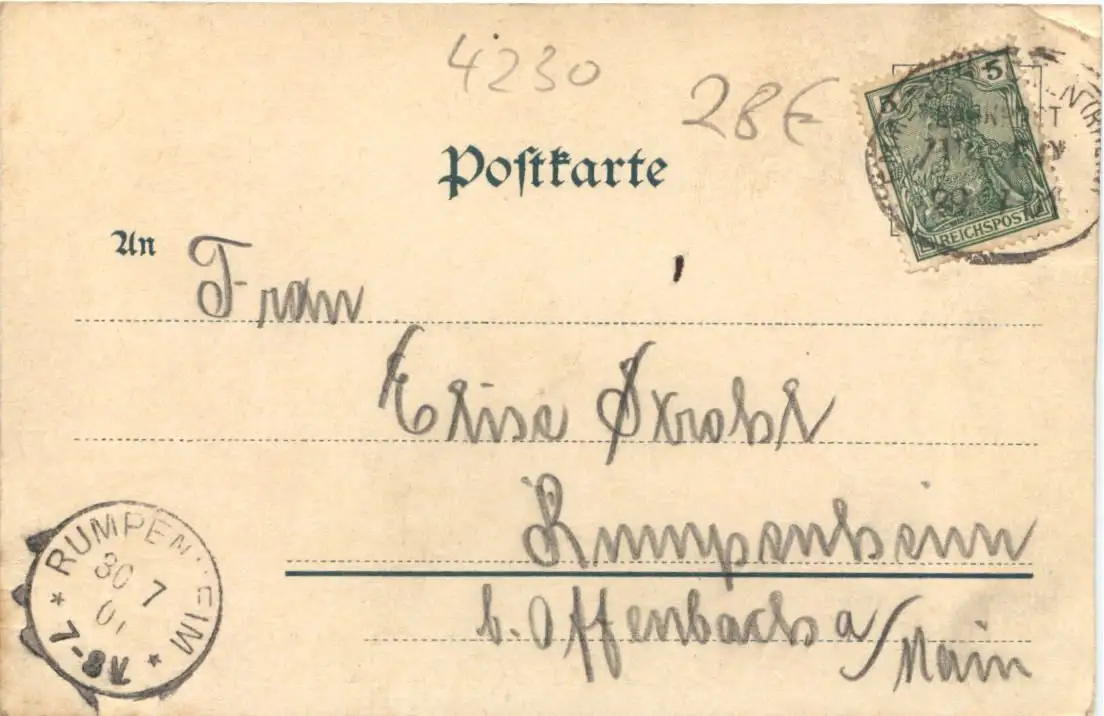 4230
28€
Postkarte
5 5
REICHSPOST
An Frau
Elise Strohl
Rumpenheim
b. Offenbach a/Main
RUMPENHEIM
30 7
01
7-8V